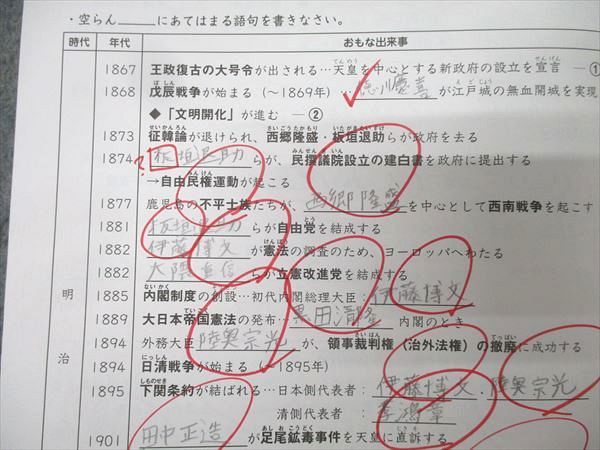 ・空らん＿＿＿にあてはまる語句を書きなさい。
時代 年代 おもな出来事
1867 王政復古の大号令が出される…天皇を中心とする新政府の設立を宣言 ―①
1868 戊辰戦争が始まる（～1869年）…徳川慶喜が江戸城の無血開城を実現
◆「文明開化」が進む ―②
1873 征韓論が退けられ、西郷隆盛・板垣退助らが政府を去る
1874 ? 板垣退助らが、民撰議院設立の建白書を政府に提出する
→自由民権運動が起こる
1877 鹿児島の不平士族たちが、西郷隆盛を中心として西南戦争を起こす
1881 板垣退助らが自由党を結成する
1882 伊藤博文が憲法の調査のため、ヨーロッパへわたる
1882 大隈重信らが立憲改進党を結成する
明 1885 内閣制度の創設…初代内閣総理大臣：伊藤博文
1889 大日本帝国憲法の発布…黒田清隆内閣のとき
治 1894 外務大臣陸奥宗光が、領事裁判権（治外法権）の撤廃に成功する
1894 日清戦争が始まる（～1895年）
1895 下関条約が結ばれる…日本側代表者：伊藤博文・陸奥宗光
清側代表者：李鴻章
1901 田中正造が足尾鉱毒事件を天皇に直訴する